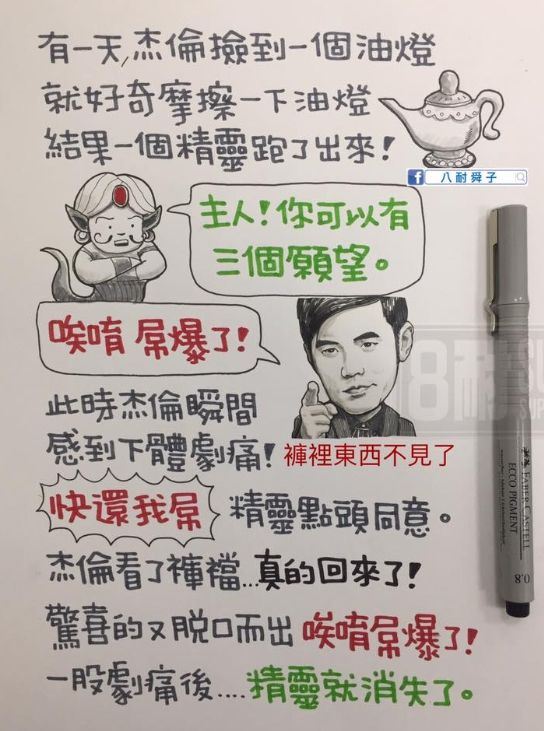 有一天,杰倫撿到一個油燈
就好奇摩擦一下油燈
結果一個精靈跑了出來!
八耐舜子
主人!你可以有
三個願望。
唉唷 屌爆了!
此時杰倫瞬間
感到下體劇痛!
褲裡東西不見了
快還我屌
精靈點頭同意。
杰倫看了褲襠...真的回來了!
驚喜的又脫口而出 唉唷屌爆了!
一股劇痛後....精靈就消失了。
FABER-CASTELL
ECCO PIGMENT
0.8